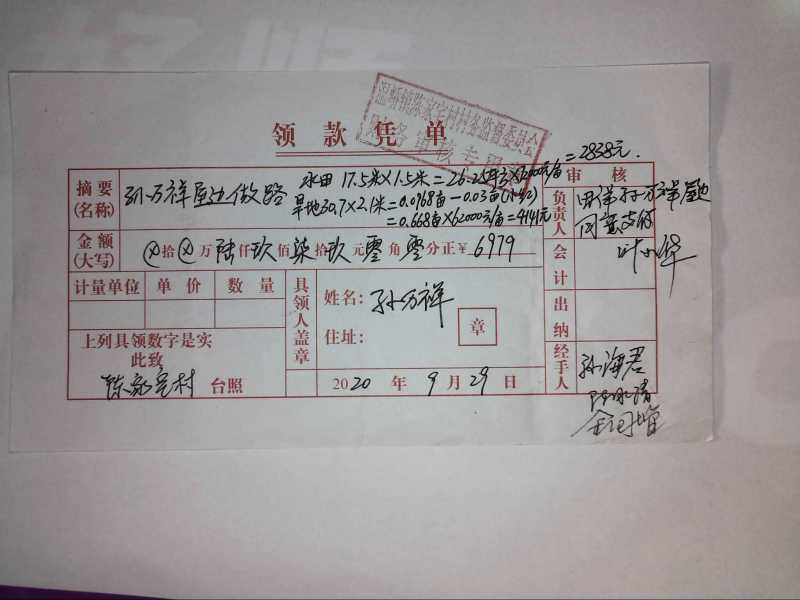 温峤镇陈家宅村村务监督委员会
财务审核专用章
领款凭单
=2838元.
水田 17.5米×1.5米=26.25平方×72000元/亩
旱地30.7×2.1米=0.0968亩-0.03亩
=0.668亩×62000元/亩=4141元
摘要
(名称)
孙万祥屋边做路
审核
负责人
同意支付
金额
(大写)
⊗拾⊗万陆仟玖佰柒拾玖元零角零分正¥ 6979
会计
叶小华
计量单位 单价 数量
具领人盖章
姓名: 孙万祥
住址:
章
出纳
上列具领数字是实
此致
陈家宅村 台照
2020年9月29日
经手人
孙海君